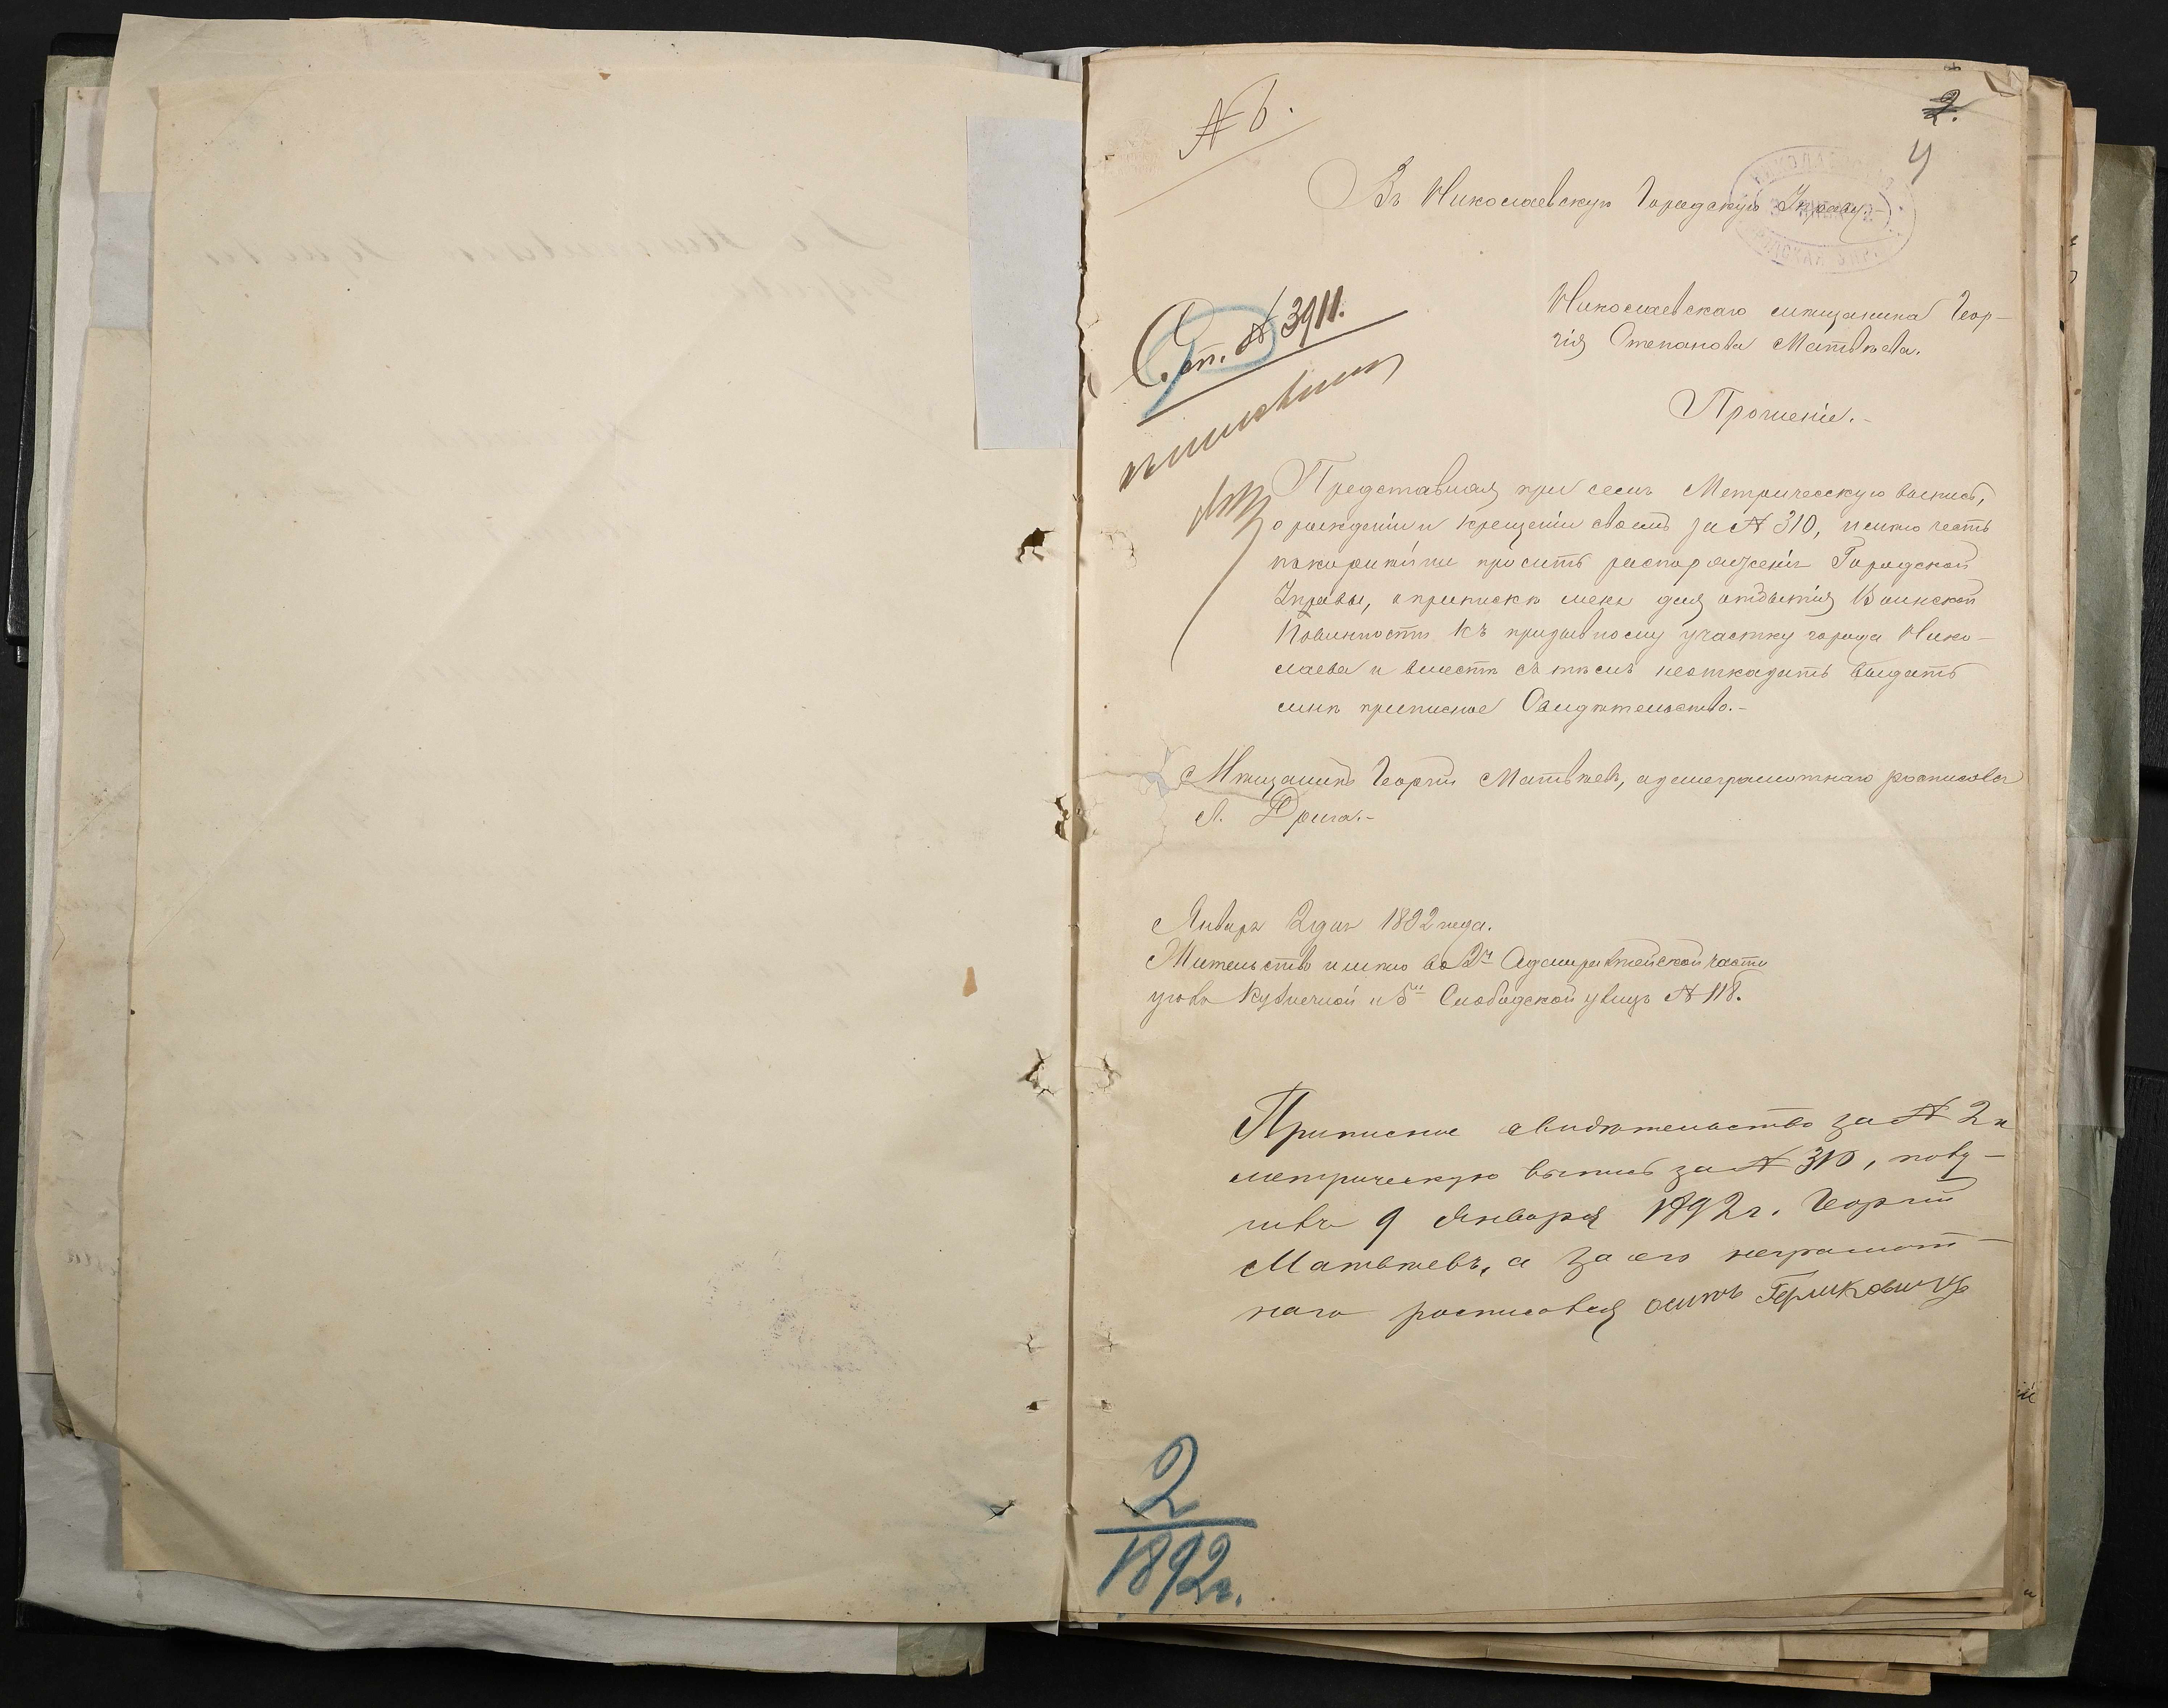 № 6.
2.
4
Въ Николаевскую Городскую Управу
Николаевскаго мѣщанина Геор-
гія Степанова Матвѣева.
Ст. № 3911.
Прошеніе.-
Представляя при семъ Метрическую выпись,
о рожденіи и крещеніи своемъ за № 310, имѣю честь
покорнѣйше просить распоряженія Городской
Управы, о припискѣ меня для отбытія Воинской
Повинности къ призывному участку города Нико-
лаева и вместѣ съ тѣмъ неотказать выдать
мнѣ приписное Свидѣтельство.-
Мѣщанинъ Георгій Матвѣевъ, а за неграмотнаго росписался
А. Дрига.-
Января 2 дня 1892 года.
Жительство имѣю во 2й Адмиралтейской части
уголъ Кузнечной и 5й Слободской улицъ № 118.
Приписное свидѣтельство за № 2 и
метрическую выпись за № 310, полу-
чилъ 9 Января 1892 г. Георгій
Матвѣевъ, а за его неграмот-
наго росписался осипъ Герликовичъ
2
1892г.